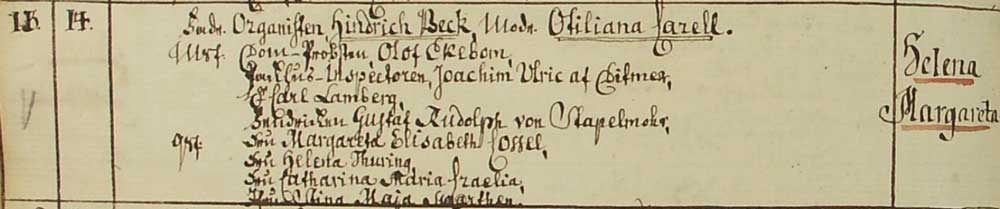 13. 14. Fadr. Organisten, Hindrich Beck, Modr. Otiliana Farell.
Msf. Dom-Probsten, Olof Ekebom,
Packhus-Inspectoren, Joachim Ulric af
Carl Lamberg,
Fendricken Gustaf Rudolph von Stapelmohr,
Qsf. Fru Margareta Elisabeth Fossel,
Fru Helena Thuring,
Fru Catharina Maria Fraelia,
Fru Stina Maja
Helena
Margareta